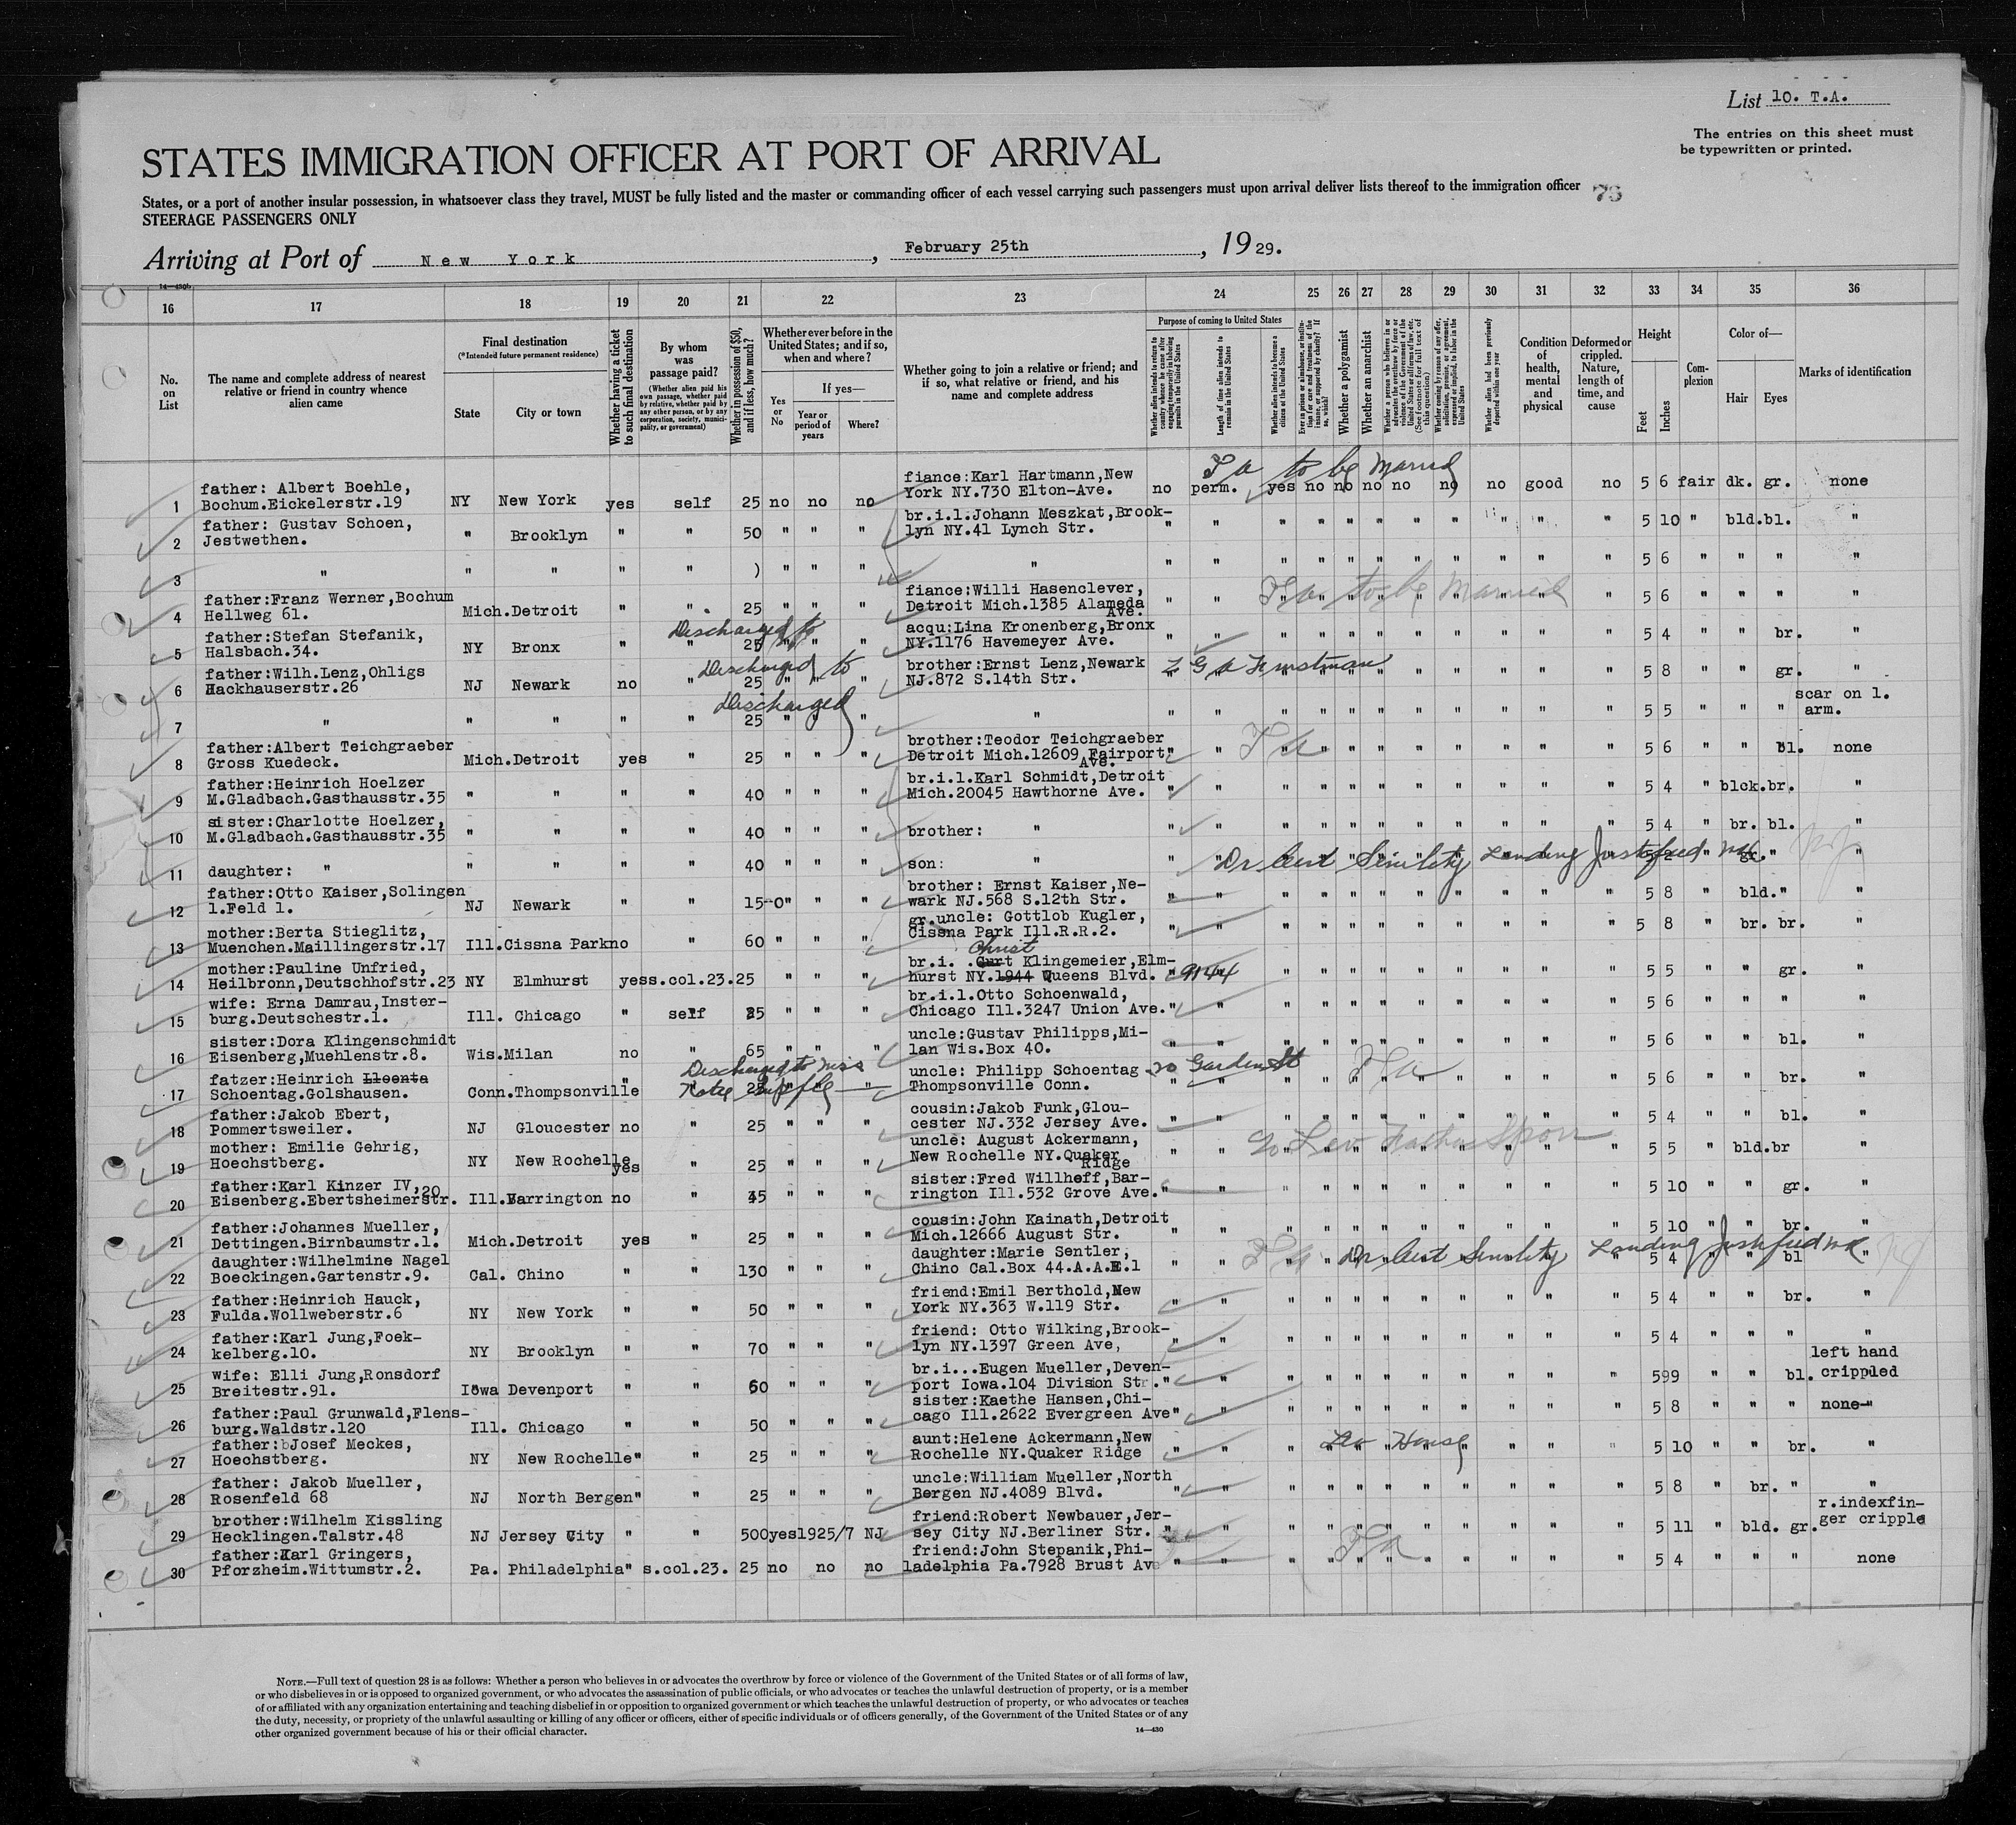 List 10. T.A.
The entries on this sheet must
be typewritten or printed.
STATES IMMIGRATION OFFICER AT PORT OF ARRIVAL
States, or a port of another insular possession, in whatsoever class they travel, MUST be fully listed and the master or commanding officer of each vessel carrying such passengers must upon arrival deliver lists thereof to the immigration officer
STEERAGE PASSENGERS ONLY
Arriving at Port of New York, February 25th, 1929.
14—430b
16 17 18 19 20 21 22 23 24 25 26 27 28 29 30 31 32 33 34 35 36
No. on List
The name and complete address of nearest relative or friend in country whence alien came
Final destination
(*Intended future permanent residence)
State
City or town
Whether having a ticket to such final destination
By whom was passage paid?
(Whether alien paid his own passage, whether paid by relative, whether paid by any other person, or by any corporation, society, municipality, or government)
Whether in possession of $50, and if less, how much?
Whether ever before in the United States; and if so, when and where?
Yes or No
If yes—
Year or period of years
Where?
Whether going to join a relative or friend; and if so, what relative or friend, and his name and complete address
Purpose of coming to United States
Length of time alien intends to remain in the United States
Whether alien intends to become a citizen of the United States
Whether a polygamist
Whether an anarchist
Condition of health, mental and physical
Deformed or crippled. Nature, length of time, and cause
Height
Feet
Inches
Complexion
Color of—
Hair
Eyes
Marks of identification
T a to be Married
1 father: Albert Boehle, Bochum.Eickelerstr.19 NY New York yes self 25 no no no fiance:Karl Hartmann,New York NY.730 Elton-Ave. no perm. yes no no no no no no good no 5 6 fair dk. gr. none
2 father: Gustav Schoen, Jestwethen. " Brooklyn " " 50 " " " br.i.l.Johann Meszkat,Brooklyn NY.41 Lynch Str. " " " " " " " " " " " 5 10 " bld.bl. "
3 " " " " " ) " " " " " " " " " " " " " " " 5 6 " " " "
4 father:Franz Werner,Bochum Hellweg 61. Mich.Detroit " " 25 " " " fiance:Willi Hasenclever, Detroit Mich.1385 Alameda Ave. " " T a to be Married " 5 6 " " " "
Discharged to
5 father:Stefan Stefanik, Halsbach.34. NY Bronx " " 25 " " " acqu:Lina Kronenberg,Bronx NY.1176 Havemeyer Ave. " " " " " " " " " " " 5 4 " " br. "
Discharged to
6 father:Wilh.Lenz,Ohligs Hackhauserstr.26 NJ Newark no " 25 " " " brother:Ernst Lenz,Newark NJ.872 S.14th Str. " " " " " " " " " 5 8 " " gr. "
Discharged
7 " " " " " 25 " " " " " " " " " " " " " " " 5 5 " " " scar on l. arm.
8 father:Albert Teichgraeber Gross Kuedeck. Mich.Detroit yes " 25 " " " brother:Teodor Teichgraeber Detroit Mich.12609 Fairport Ave. " " T a " " " " " " " " 5 6 " " bl. none
9 father:Heinrich Hoelzer M.Gladbach.Gasthausstr.35 " " " " 40 " " " br.i.l.Karl Schmidt,Detroit Mich.20045 Hawthorne Ave. " " " " " " " " " " 5 4 " blck.br. "
10 sister:Charlotte Hoelzer, M.Gladbach.Gasthausstr.35 " " " " 40 " " " brother: " " " " " " " " " " " " 5 4 " br. bl. "
11 daughter: " " " " " 40 " " " son: " " Dr Cert Senility Landing Justified " gr. " "
12 father:Otto Kaiser,Solingen l.Feld 1. NJ Newark " " 15-0" " " brother: Ernst Kaiser,Newark NJ.568 S.12th Str. " " " " " " " " " " " 5 8 " bld." "
13 mother:Berta Stieglitz, Muenchen.Maillingerstr.17 Ill.Cissna Park no " 60 " " " gr.uncle: Gottlob Kugler, Cissna Park Ill.R.R.2. " " " " " " " " " " " 5 8 " br. br. "
14 mother:Pauline Unfried, Heilbronn,Deutschhofstr.23 NY Elmhurst yes s.col.23.25 " " " br.i. .Curt Christ Klingemeier,Elmhurst NY.1944 Queens Blvd. 9144 " " " " " " " " " 5 5 " " gr. "
15 wife: Erna Damrau,Insterburg.Deutschestr.1. Ill. Chicago " self 25 " " " br.i.l.Otto Schoenwald, Chicago Ill.3247 Union Ave." " " " " " " " " " " 5 6 " " " "
16 sister:Dora Klingenschmidt Eisenberg,Muehlenstr.8. Wis.Milan no " 65 " " " uncle:Gustav Philipps,Milan Wis.Box 40. " " " " " " " " " " " 5 6 " " bl. "
Discharged to Miss
17 fatzer:Heinrich Schoentag.Golshausen. Conn.Thompsonville " " 25 " " " uncle: Philipp Schoentag Thompsonville Conn. 20 Garden St T a " " " " 5 6 " " br. "
18 father:Jakob Ebert, Pommertsweiler. NJ Gloucester no " 25 " " " cousin:Jakob Funk,Gloucester NJ.332 Jersey Ave. " " " " " " " " " " " 5 4 " " bl. "
19 mother: Emilie Gehrig, Hoechstberg. NY New Rochelle yes " 25 " " " uncle: August Ackermann, New Rochelle NY.Quaker Ridge " " " " " 5 5 " bld.br "
20 father:Karl Kinzer IV, Eisenberg.Ebertsheimerstr.20 Ill.Barrington no " 45 " " " sister:Fred Willheff,Barrington Ill.532 Grove Ave." " " " " " " " " " " 5 10 " " gr. "
21 father:Johannes Mueller, Dettingen.Birnbaumstr.1. Mich.Detroit yes " 25 " " " cousin:John Kainath,Detroit Mich.12666 August Str. " " " " " " " " " " " 5 10 " " br. "
22 daughter:Wilhelmine Nagel Boeckingen.Gartenstr.9. Cal. Chino " " 130 " " " daughter:Marie Sentler, Chino Cal.Box 44.A.A.E.1 " " T a Dr Cert Senility Landing Justified 5 4 " " bl "
23 father:Heinrich Hauck, Fulda.Wollweberstr.6 NY New York " " 50 " " " friend:Emil Berthold,New York NY.363 W.119 Str. " " " " " " " " " " " 5 4 " " br. "
24 father:Karl Jung,Foekkelberg.10. NY Brooklyn " " 70 " " " friend: Otto Wilking,Brooklyn NY.1397 Green Ave, " " " " " " " " " " " 5 4 " " " "
25 wife: Elli Jung,Ronsdorf Breitestr.91. Iowa Devenport " " 60 " " " br.i...Eugen Mueller,Devenport Iowa.104 Division Str." " " " " " " " " " " 599 " " bl. left hand crippled
26 father:Paul Grunwald,Flensburg.Waldstr.120 Ill. Chicago " " 50 " " " sister:Kaethe Hansen,Chicago Ill.2622 Evergreen Ave" " " " " " " " " " " 5 8 " " " none-"
27 father:bJosef Meckes, Hoechstberg. NY New Rochelle" " 25 " " " aunt:Helene Ackermann,New Rochelle NY.Quaker Ridge " " " Leo House " " " 5 10 " " br. "
28 father: Jakob Mueller, Rosenfeld 68 NJ North Bergen" " 25 " " " uncle:William Mueller,North Bergen NJ.4089 Blvd. " " " " " " " " " " " 5 8 " br. " "
29 brother:Wilhelm Kissling Hecklingen.Talstr.48 NJ Jersey City " " 500yes1925/7 NJ friend:Robert Newbauer,Jersey City NJ.Berliner Str. " " " " " " " " " " " 5 11 " bld. gr. r.indexfinger cripple
30 father:Karl Gringers, Pforzheim.Wittumstr.2. Pa. Philadelphia" s.col.23. 25 no no no friend:John Stepanik,Philadelphia Pa.7928 Brust Ave " " " T a " " " " " 5 4 " " " none
NOTE.—Full text of question 28 is as follows: Whether a person who believes in or advocates the overthrow by force or violence of the Government of the United States or of all forms of law,
or who disbelieves in or is opposed to organized government, or who advocates the assassination of public officials, or who advocates or teaches the unlawful destruction of property, or is a member
of or affiliated with any organization entertaining and teaching disbelief in or opposition to organized government or which teaches the unlawful destruction of property, or who advocates or teaches
the duty, necessity, or propriety of the unlawful assaulting or killing of any officer or officers, either of specific individuals or of officers generally, of the Government of the United States or of any
other organized government because of his or their official character.
14—430